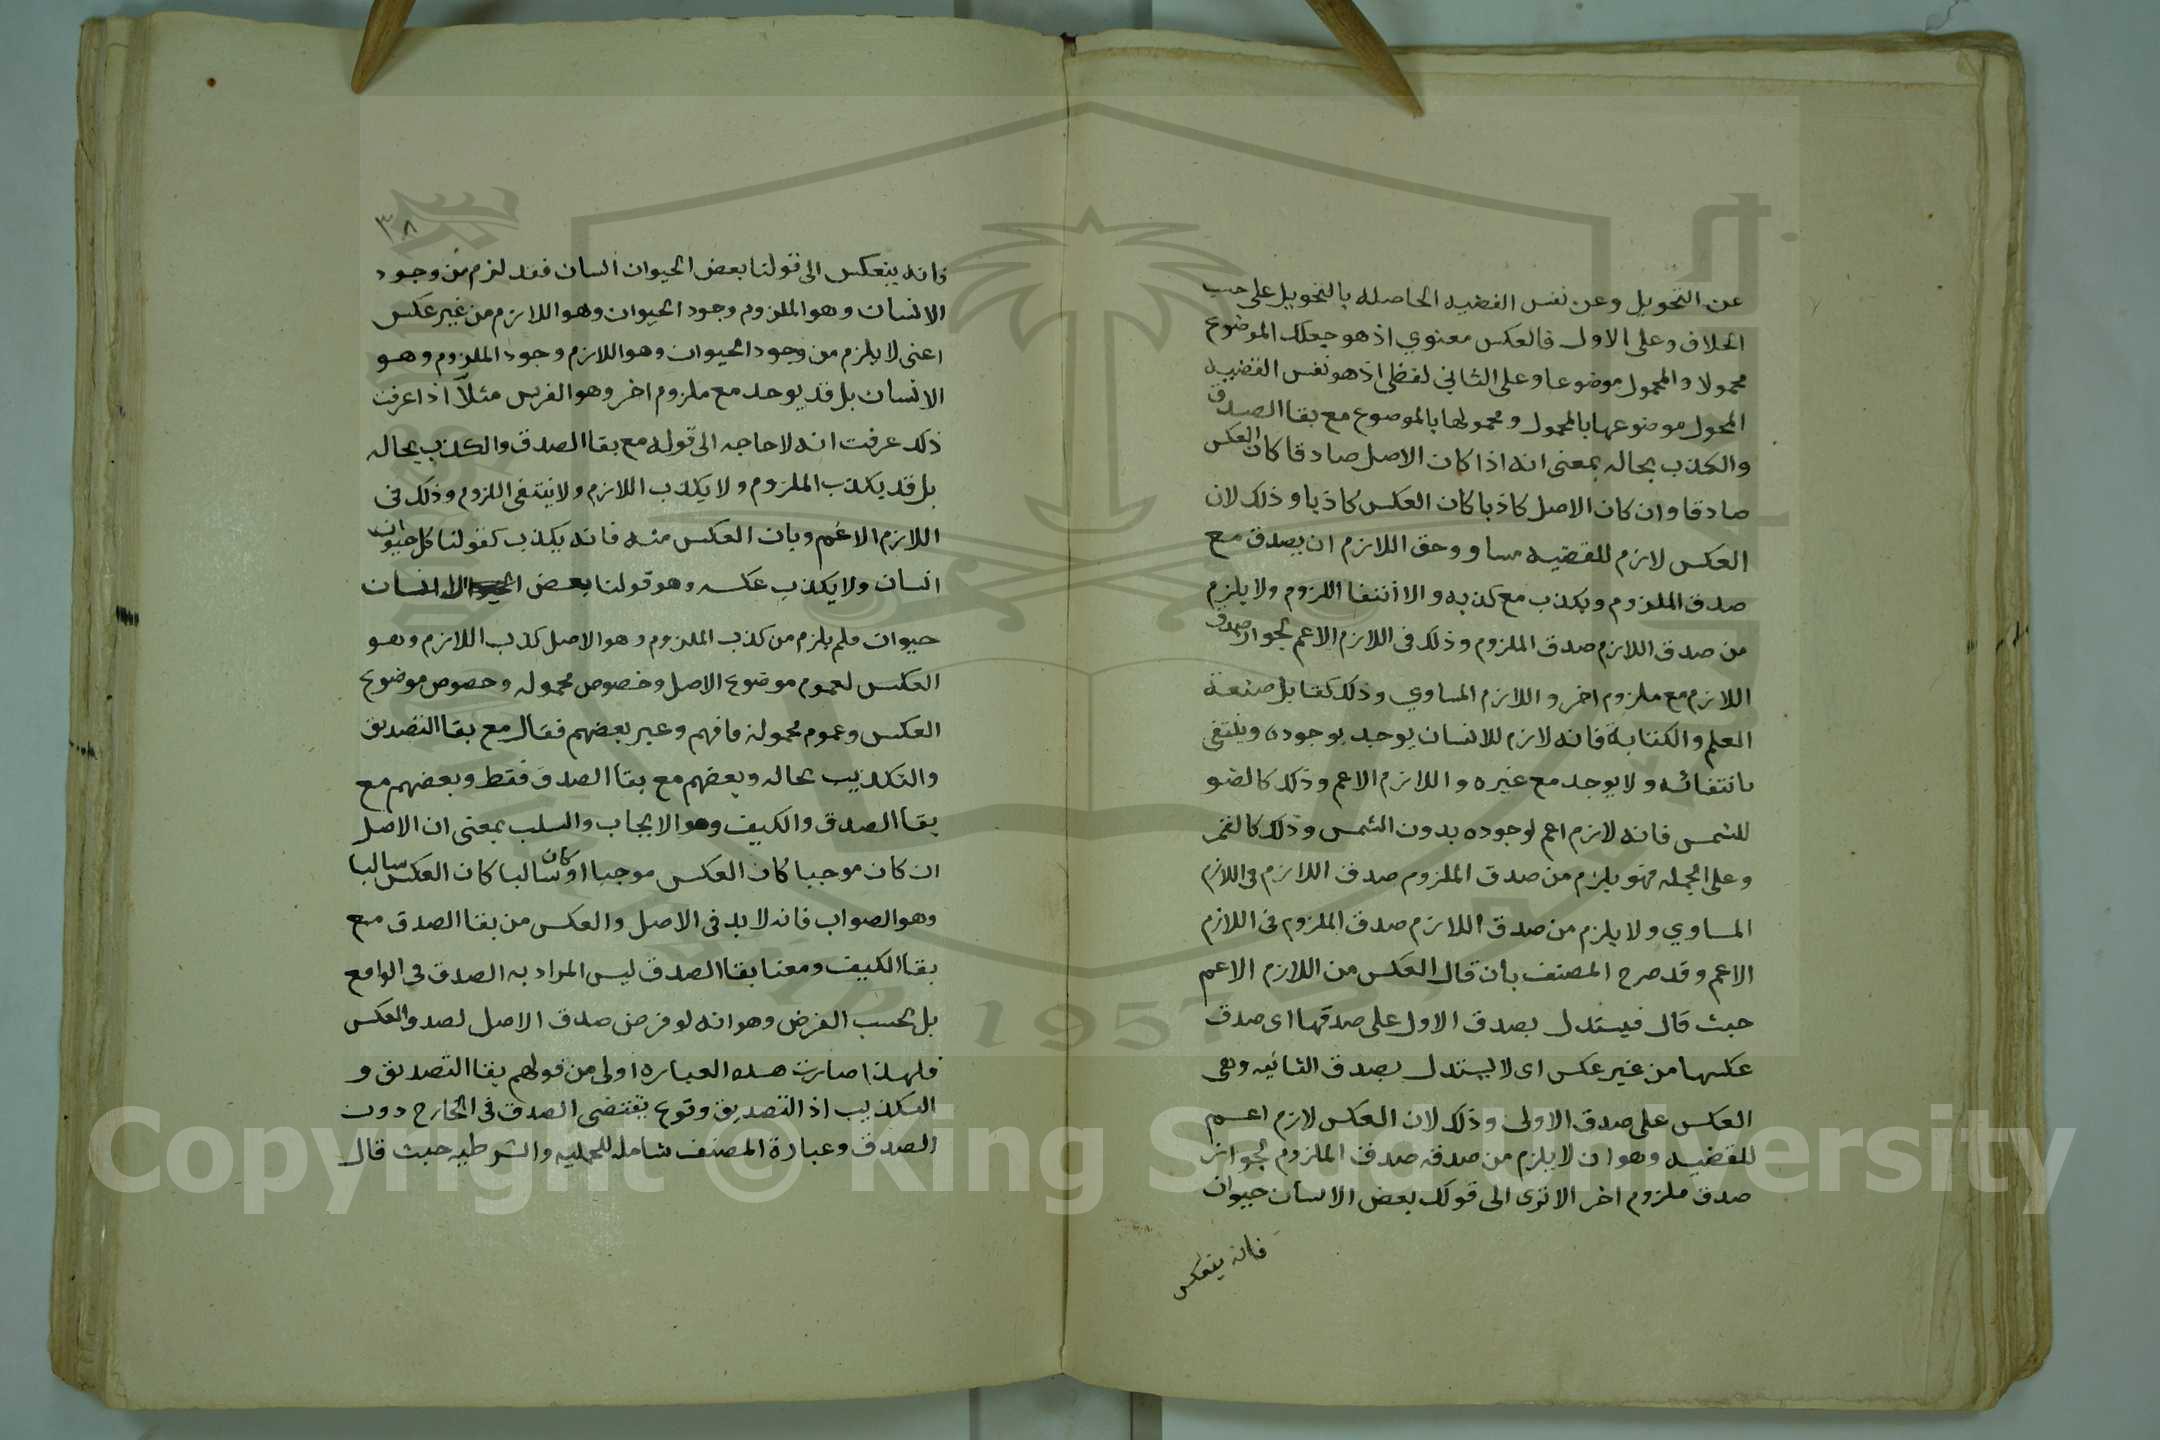 عن التحويل وعن نفس القضيه الحاصله بالتحويل على حسب
الخلاف وعلى الاول فالعكس معنوي اذ هو جعلك الموضوع
محمولا والمحمول موضوعا وعلى الثاني لفظي اذ هو نفس القضيه
المحول موضوعها بالمحمول ومحمولها بالموضوع مع بقا الصدق
والكذب بحاله بمعنى انه اذا كان الاصل صادقا كان العكس
صادقا وان كان الاصل كاذبا كان العكس كاذبا وذلك لان
العكس لازم للقضيه مساو وحق اللازم ان يصدق مع
صدق الملزوم ويكذب مع كذبه والا انتفا اللزوم ولا يلزم
من صدق اللازم صدق الملزوم وذلك في اللازم الاعم لجواز صدق
اللازم مع ملزوم اخر واللازم المساوي وذلك كقابل صنعة
العلم والكتابة فانه لازم للانسان يوجد بوجوده وينتفي
بانتفائه ولا يوجد مع غيره واللازم الاعم وذلك كالضو
للشمس فانه لازم اعم لوجوده بدون الشمس وذلك كالقمر
وعلى الجمله فهو يلزم من صدق الملزوم صدق اللازم في اللازم
المساوي ولا يلزم من صدق اللازم صدق الملزوم في اللازم
الاعم وقد صرح المصنف بان قال العكس من اللازم الاعم
حيث قال فيستدل بصدق الاول على صدقها اى صدق
عكسها من غير عكس اى لا يستدل بصدق الثانيه وهى
العكس على صدق الاولى وذلك لان العكس لازم اعم
للقضيه وهو ان لا يلزم من صدقه صدق الملزوم لجواز
صدق ملزوم اخر الا ترى الى قولك بعض الانسان حيوان
فانه ينعكس
٣٨
فانه ينعكس الى قولنا بعض الحيوان انسان فقد لزم من وجود
الانسان وهو الملزوم وجود الحيوان وهو اللازم من غير عكس
اعنى لا يلزم من وجود الحيوان وهو اللازم وجود الملزوم وهو
الانسان بل قد يوجد مع ملزوم اخر وهو الفرس مثلا اذا عرفت
ذلك عرفت انه لا حاجه الى قوله مع بقا الصدق والكذب بحاله
بل قد يكذب الملزوم ولا يكذب اللازم ولا ينتفى اللزوم وذلك فى
اللازم الاعم وبان العكس منه فانه يكذب كقولنا كل حيوان
انسان ولا يكذب عكسه وهو قولنا بعض الانسان
حيوان فلم يلزم من كذب الملزوم وهو الاصل كذب اللازم وهو
العكس لعموم موضوع الاصل وخصوص محموله وخصوص موضوع
العكس وعموم محموله فافهم وعبر بعضهم فقال مع بقا التصديق
والتكذيب بحاله وبعضهم مع بقا الصدق فقط وبعضهم مع
بقا الصدق والكيف وهو الايجاب والسلب بمعنى ان الاصل
ان كان موجبا كان العكس موجبا او كان سالبا كان العكس سالبا
وهو الصواب فانه لا بد فى الاصل والعكس من بقا الصدق مع
بقا الكيف ومعنا بقا الصدق ليس المراد به الصدق فى الواقع
بل بحسب الفرض وهو انه لو فرض صدق الاصل لصدق العكس
فلهذا صارت هذه العباره اولى من قولهم بقا التصديق و
التكذيب اذ التصديق وقوع يقتضى الصدق فى الخارج دون
الصدق وعبارة المصنف شامله للحمليه والشرطيه حيث قال
1957
Copyright © King Saud University